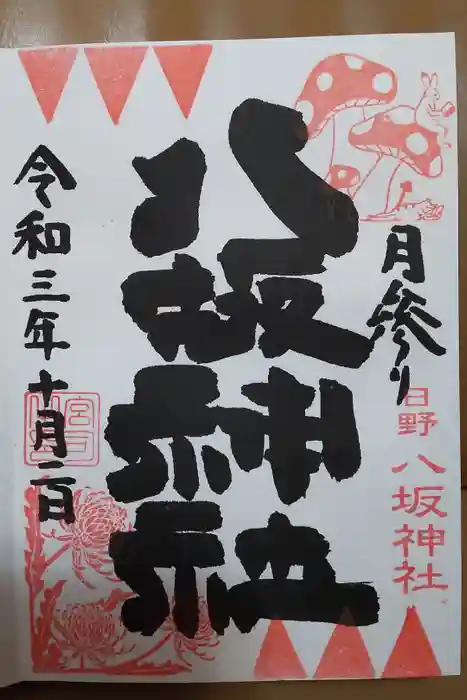 月参り
日野
八坂神社
八坂神社
令和三年十月二日